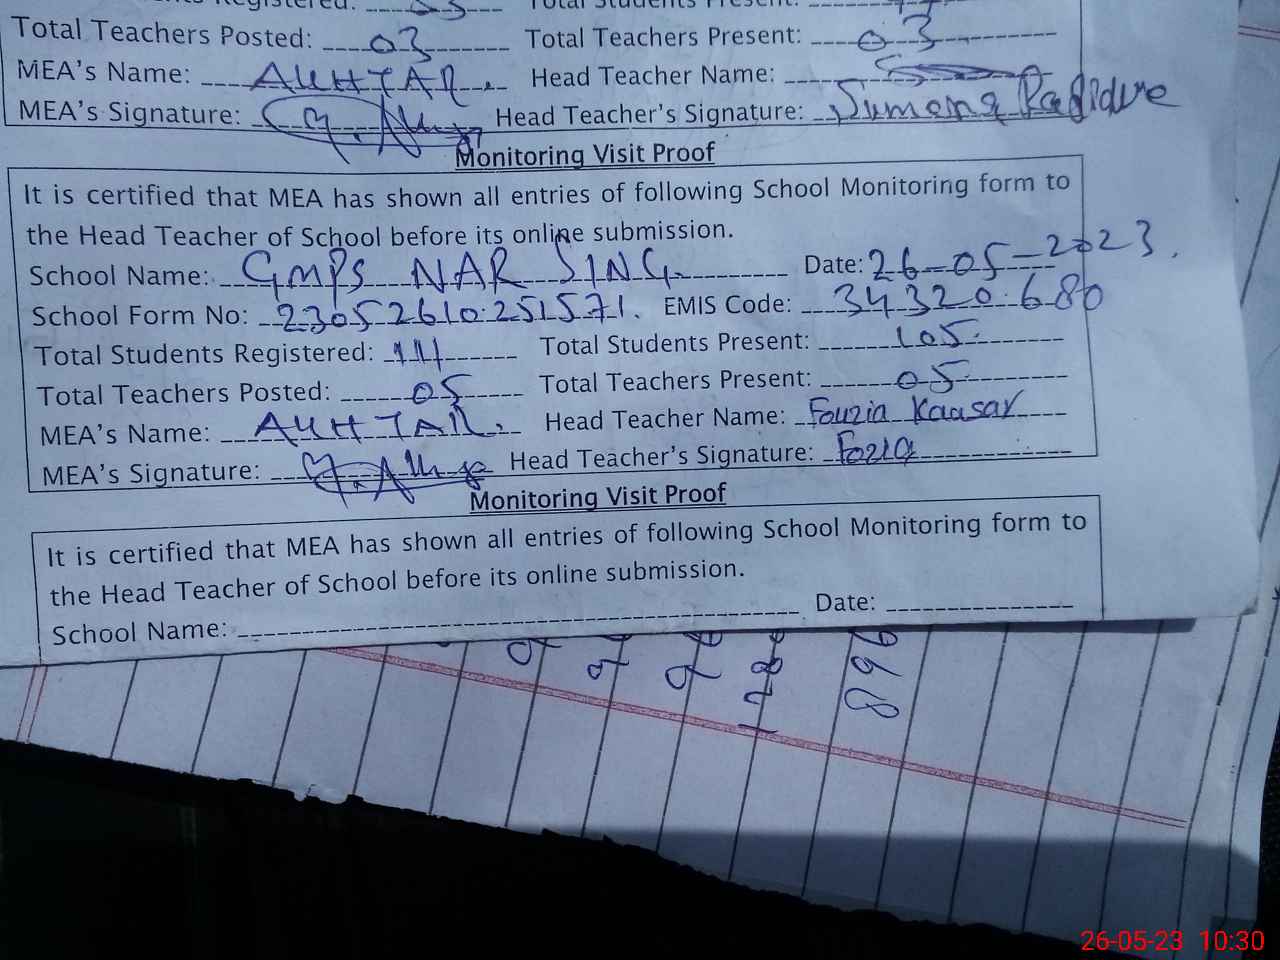 Total Teachers Posted: 03 Total Teachers Present: 03
MEA's Name: AKHTAR. Head Teacher Name:
MEA's Signature: Head Teacher's Signature: Sumana
Monitoring Visit Proof
It is certified that MEA has shown all entries of following School Monitoring form to
the Head Teacher of School before its online submission.
School Name: GMPS NAR SING. Date: 26-05-2023.
School Form No: 23052610251571. EMIS Code: 34320680
Total Students Registered: 111 Total Students Present: 105
Total Teachers Posted: 05 Total Teachers Present: 05
MEA's Name: AKHTAR. Head Teacher Name: Fouzia Kausar
MEA's Signature: Head Teacher's Signature: Fozia
Monitoring Visit Proof
It is certified that MEA has shown all entries of following School Monitoring form to
the Head Teacher of School before its online submission.
School Name: Date:
26-05-23 10:30